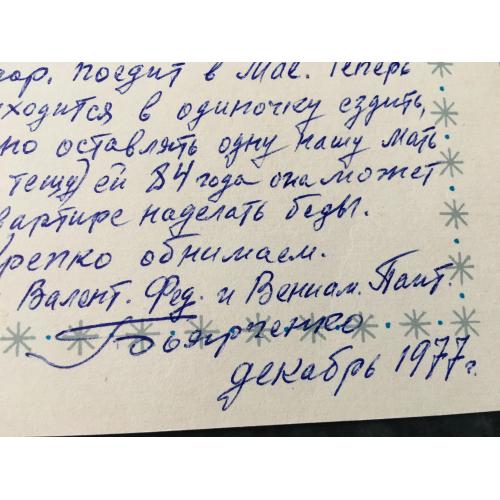 дор, поедит в Мае. Теперь
иходится в одиночку ездить,
но оставлять одну нашу мать
тещу) ей 84 года она может
вартире наделать беды.
Крепко обнимаем.
Валент. Фед. и Вениам. Пант.
Боярченко
декабрь 1977 г.